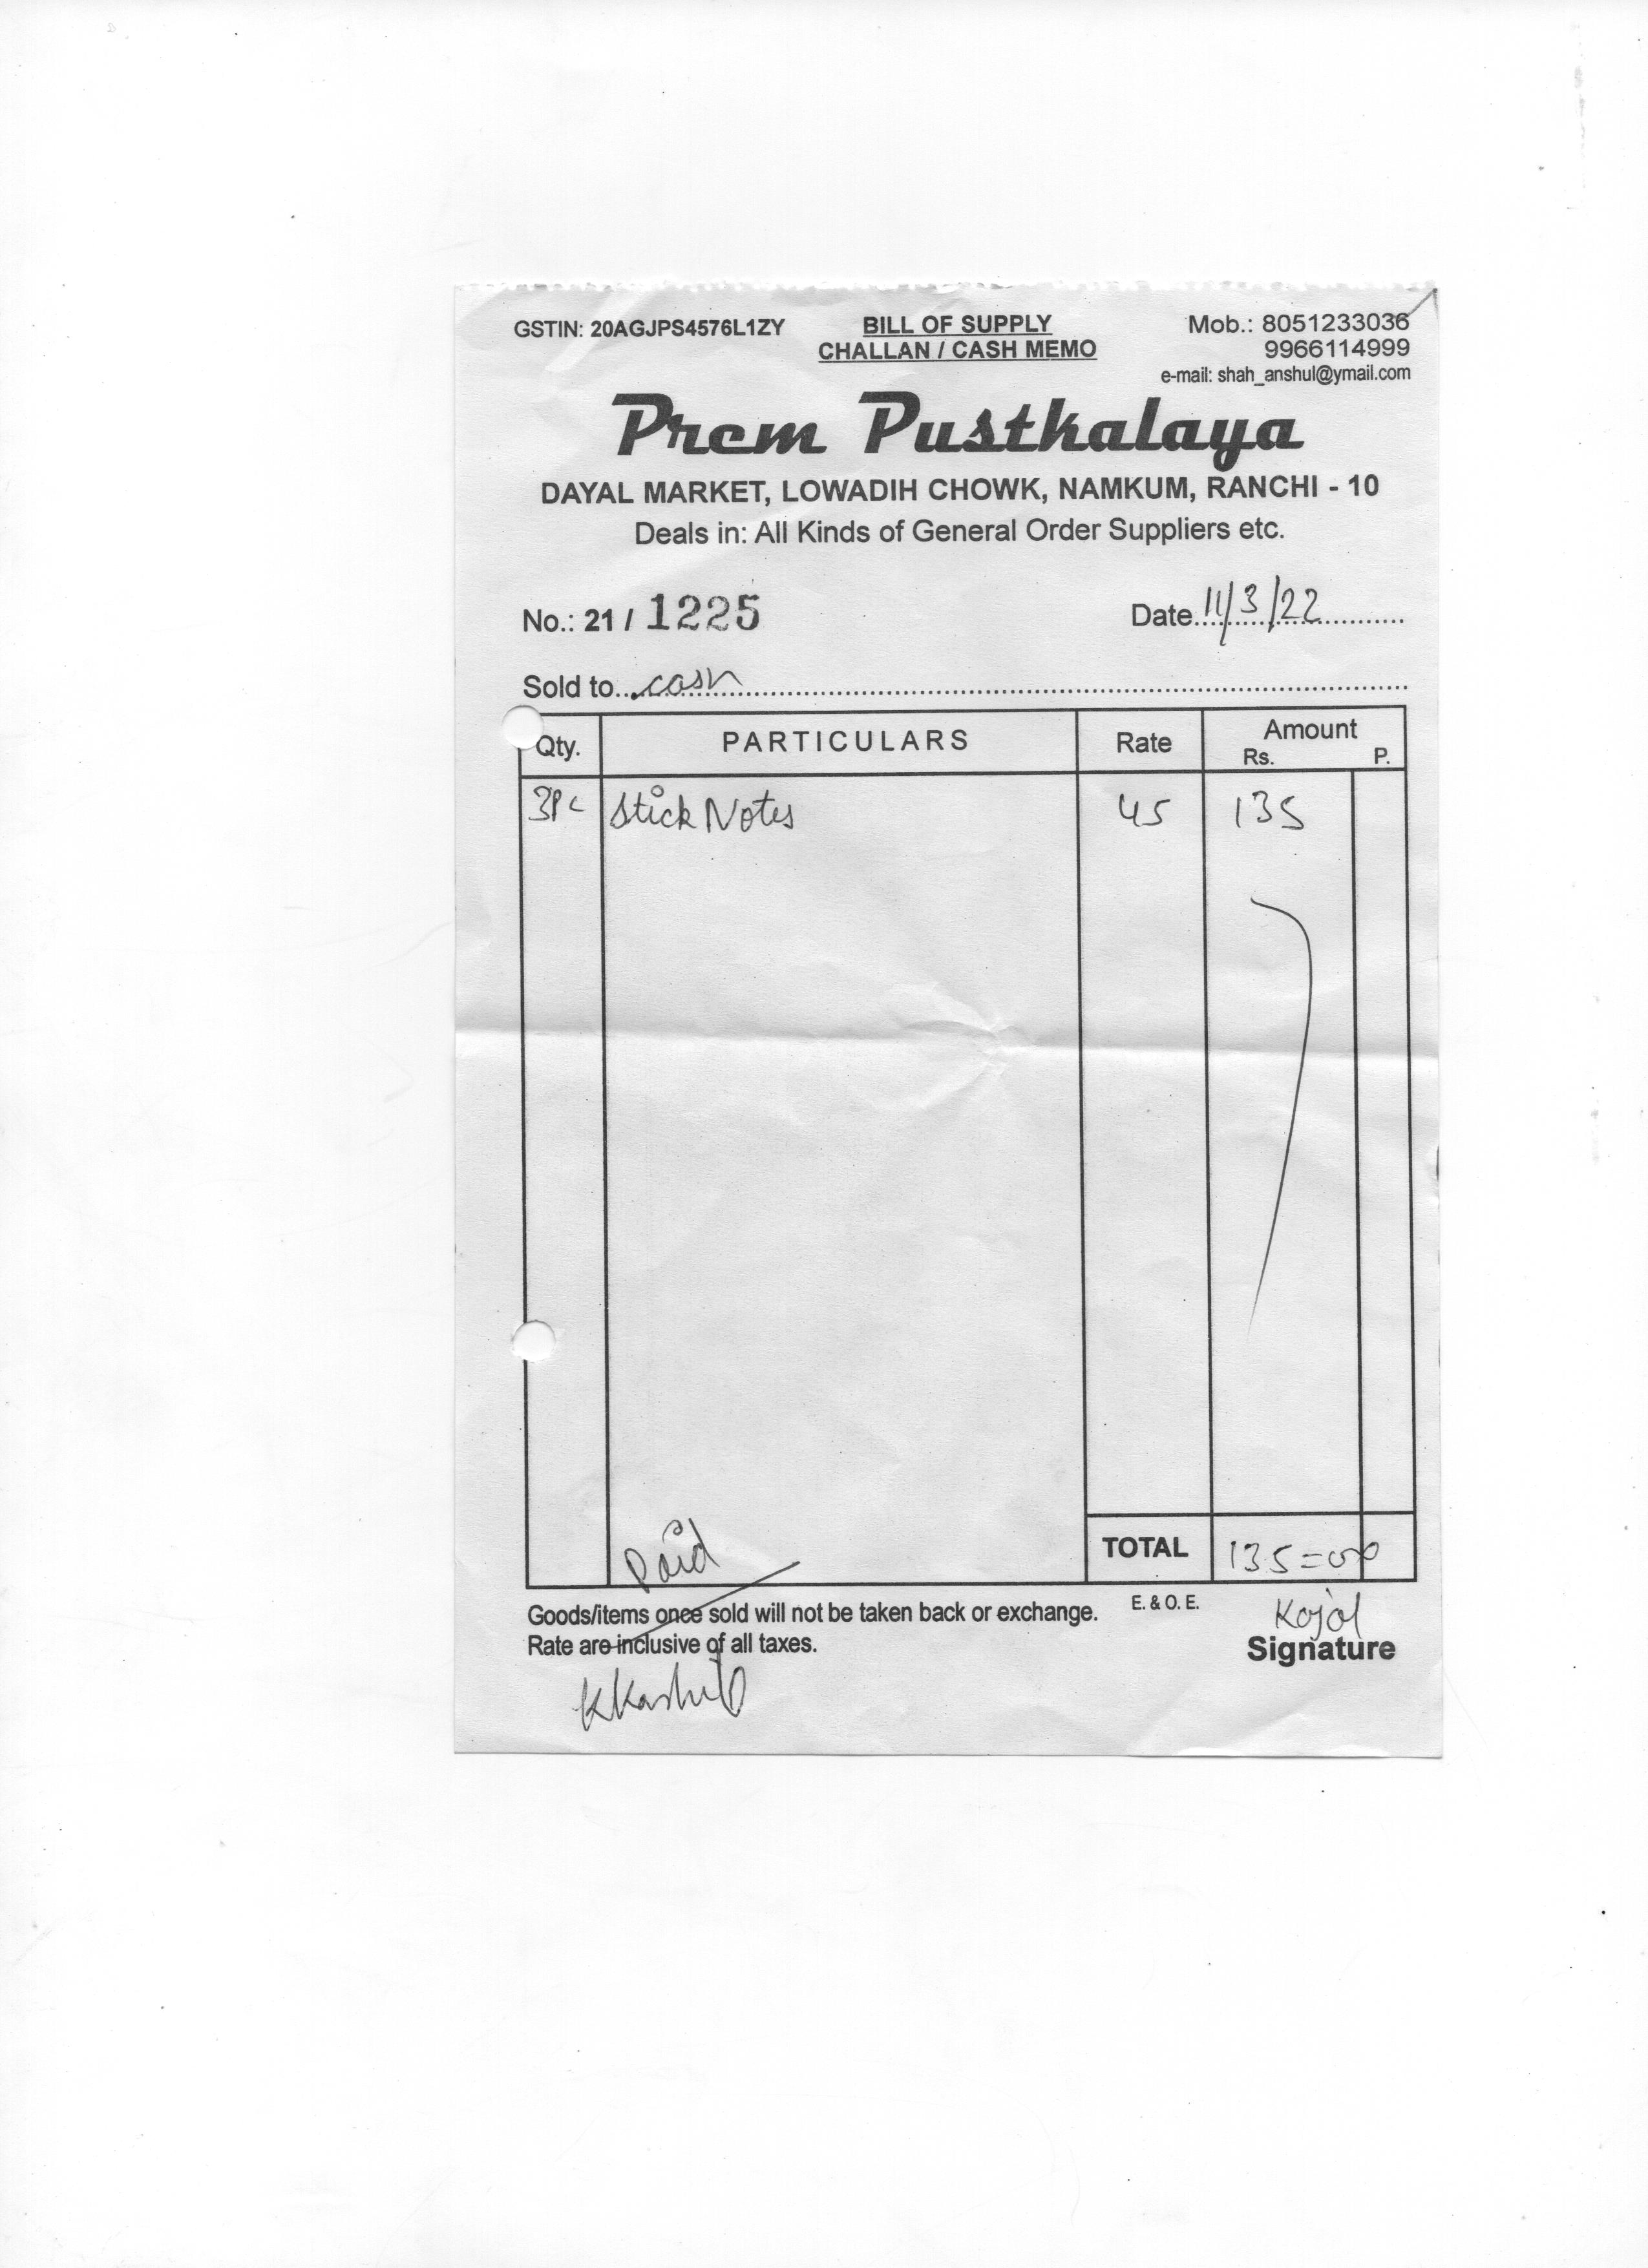 GSTIN: 20AGJPS4576L1ZY
BILL OF SUPPLY
CHALLAN / CASH MEMO
Mob.: 8051233036
9966114999
e-mail: shah_anshul@ymail.com
Prem Pusthalaya
DAYAL MARKET, LOWADIH CHOWK, NAMKUM, RANCHI - 10
Deals in: All Kinds of General Order Suppliers etc.
No.: 21 / 1225 Date 11/3/22
Sold to cash
Qty. PARTICULARS Rate Amount
Rs. P.
3Pc Stick Notes 45 135
Paid
TOTAL 135=00
Goods/items once sold will not be taken back or exchange. E. & O. E.
Rate are inclusive of all taxes.
Kajol
Signature